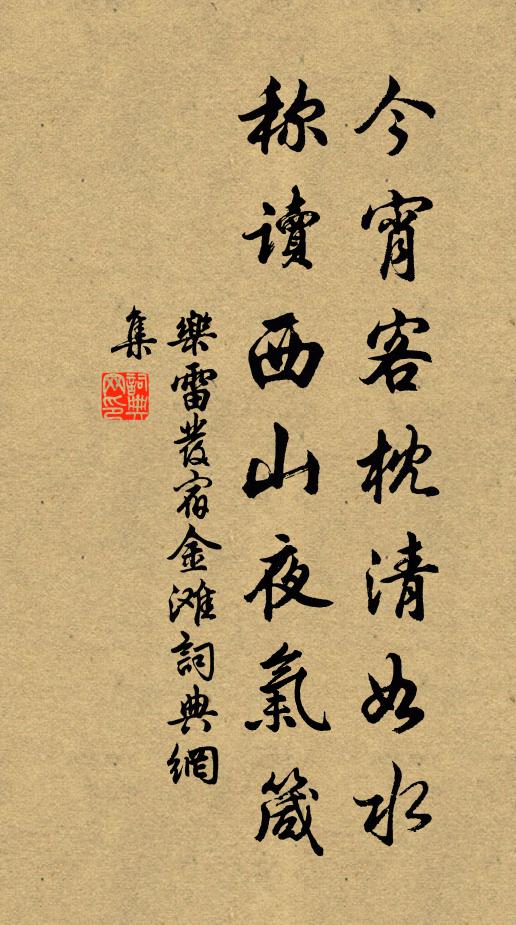 今宵客枕清如水
称读西山夜氣箴
樂雷發宿金滩詞典網
集
詞典
网印